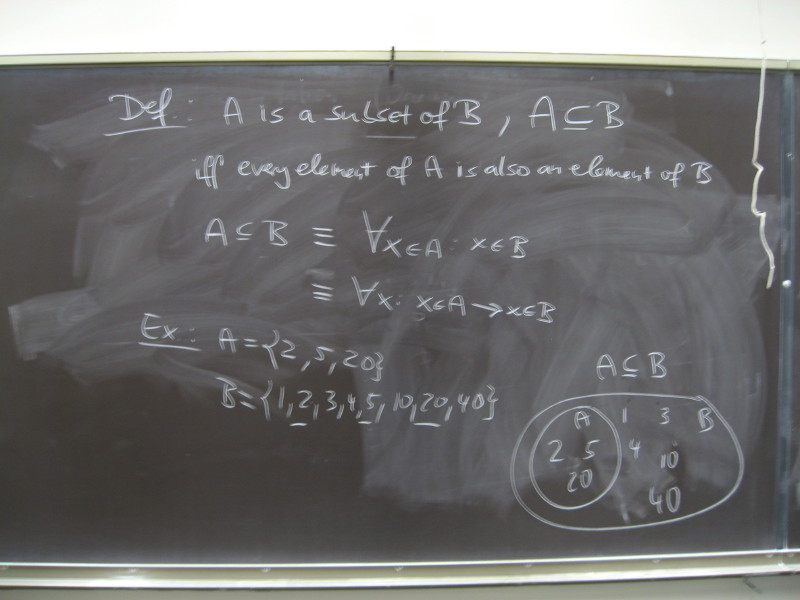 Def: A is a subset of B, A ⊆ B
iff every element of A is also an element of B
A ⊆ B ≡ ∀x∈A: x∈B
≡ ∀x: x∈A → x∈B
Ex: A = {2, 5, 20}
B = {1, 2, 3, 4, 5, 10, 20, 40}
A ⊆ B
A 1 3 B
2 5 4 10
20 40